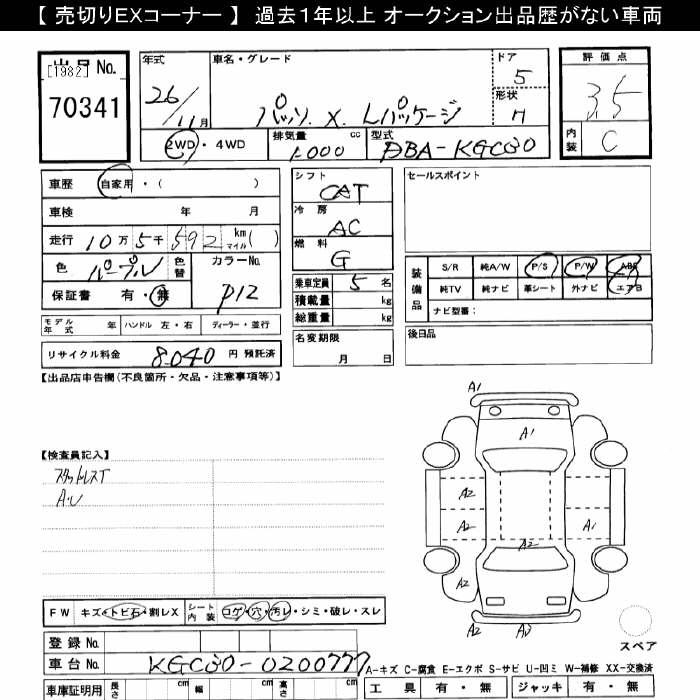 【 売切りEXコーナー 】 過去1年以上 オークション出品歴がない車両
出品 No.
[1982]
70341
年式
26/11月
車名・グレード
パッソ X Lパッケージ
ドア
5
形状
H
評価点
3.5
内装
C
2WD・4WD
排気量 1.000 cc
型式 DBA-KGC30
車歴 自家用・( )
車検 年 月
走行 10万5千592 km マイル( )
色 パープル 色替
カラーNo. P12
保証書 有・無
モデル年式 年 ハンドル 左・右 ディーラー・並行
リサイクル料金 8.040 円 預託済
シフト
CAT
冷房
AC
燃料
G
乗車定員 5 名
積載量 kg
総重量 kg
名変期限
月 日
セールスポイント
装備品
S/R 純A/W P/S P/W ABS
純TV 純ナビ 革シート 外ナビ エアB
ナビ型番:
後日品
【出品店申告欄(不良箇所・欠品・注意事項等)】
【検査員記入】
スタッドレスT
A.U
A1
A1
A2
A2
A1
A2
A2
A2
A3
スペア
FW キズ・トビ石・割レX シート内装 コゲ・穴・汚レ・シミ・破レ・スレ
登録 No.
車台 No. KGC30-0200777
A-キズ C-腐食 E-エクボ S-サビ U-凹ミ W-補修 XX-交換済
車庫証明用 長さ cm 幅 cm 高さ cm
工具 有・無 ジャッキ 有・無